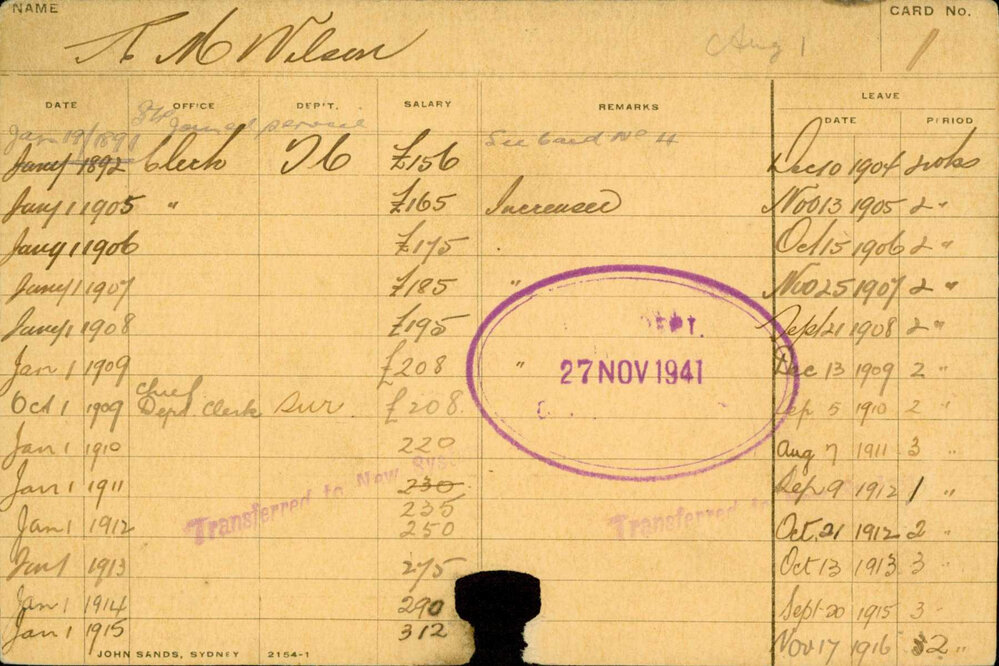 NAME CARD No.
A M Wilson Aug 1 1
DATE OFFICE DEP'T. SALARY REMARKS LEAVE
DATE PERIOD
Jan 19/1891 Joined service See Card No 4
Jany 1892 Clerk £156 Dec 10 1904 2 wks
Jany 1 1905 " £165 Increased Nov 13 1905 2 "
Jany 1 1906 £175 Oct 15 1906 2 "
Jany 1 1907 £185 " Nov 25 1907 2 "
Jany 1 1908 £195 Sept 21 1908 2 "
DEPT.
Jan 1 1909 £208 " 27 NOV 1941 Dec 13 1909 2 "
Chief
Oct 1 1909 Dept Clerk Sur £208 Sep 5 1910 2 "
Jan 1 1910 220 Aug 7 1911 3 "
Jan 1 1911 230 Sep 9 1912 1 "
235
Transferred to New Sys Transferred to
Jan 1 1912 250 Oct. 21 1912 2 "
Jan 1 1913 275 Oct 13 1913 3 "
Jan 1 1914 290 Sept 20 1915 3 "
Jan 1 1915 312 Nov 17 1916 2 "
JOHN SANDS, SYDNEY 2154-1